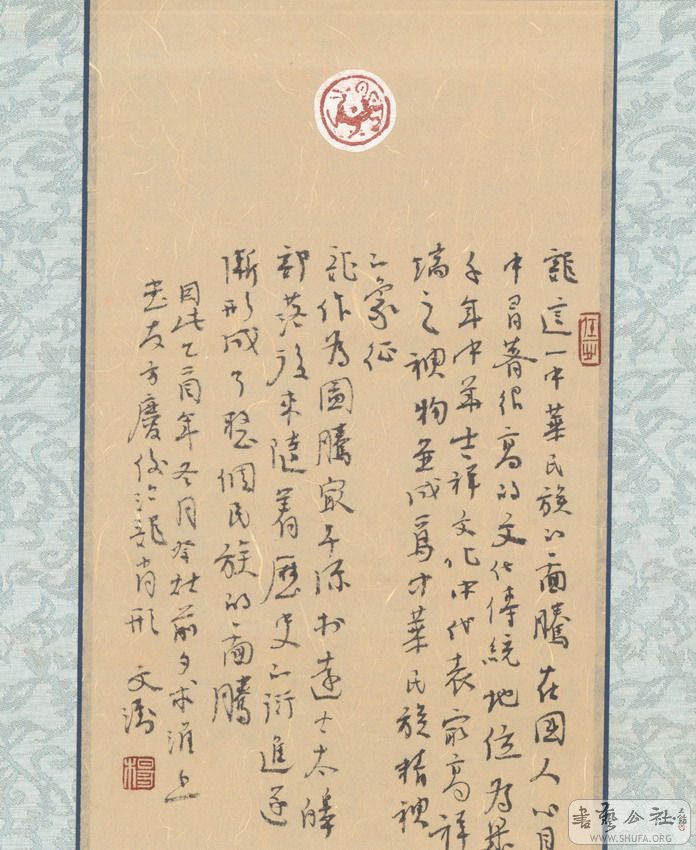 龍這一中華民族的圖騰在國人心目
中有着很高的文化傳統地位為
千年中華吉祥文化中代表最高祥
瑞之神物並成爲中華民族精神
之象征
龍作为圖騰最早源於遠古太皞
部落後來隨着歷史之衍進逐
漸形成了整個民族的圖騰
乙酉年冬月 前夕 淮上
友方慶俊治龍肖形 文濤
書藝公社
WWW.SHUFA.ORG